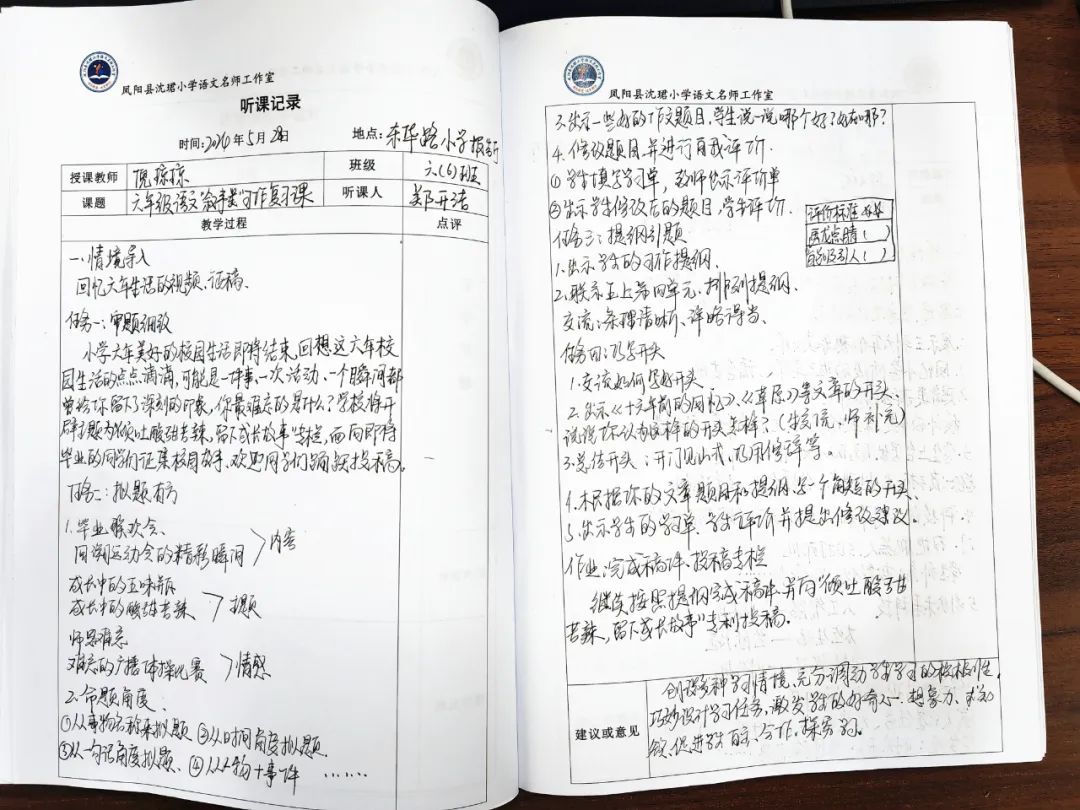 凤阳县沈珺小学语文名师工作室
听课记录
时间:2024年5月28日 地点:东华路小学报告厅
授课教师 倪琼琼 班级 六(6)班
课题 六年级语文“叙事类”习作复习课 听课人 郑开洁
教学过程 点评
一、情境导入
回忆六年生活的视频、征稿。
任务一:审题细致
小学六年美好的校园生活即将结束,回想这六年校
园生活的点点滴滴,可能是一件事、一次活动、一个瞬间都
曾给你留下了深刻的印象,你最难忘的是什么?学校将开
辟主题为“倾吐酸甜苦辣,留下成长故事”专栏,面向即将
毕业的同学们征集校园故事,欢迎同学们踊跃投稿。
任务二:拟题有方
1.毕业联欢会
田径运动会的精彩瞬间 >内容
成长中的五味瓶
成长中的酸甜苦辣 >主题
师恩难忘
难忘的广播体操比赛 >情感
2.命题角度:
①从事物名称来拟题 ②从时间角度拟题
③从一句话角度拟题、④从人物+事件 ……
凤阳县沈珺小学语文名师工作室
3.出示一些好的作文题目,学生说一说哪个好?好在哪?
4.修改题目,并进行自我评价.
①学生填写学习单,教师出示评价单
②出示学生修改后的题目,学生评价.
评价标准
画龙点睛( )
任务三:提纲引题
有吸引人( )
1.出示学生的习作提纲.
2.联系五上第四单元,排列提纲.
交流:条理清晰、详略得当.
任务四:巧写开头
1.交流如何写好开头、
2.出示《十六年前的回忆》、《草原》等文章的开头,
说说你认为这样的开头怎样?(生交流,师补充)
3.总结开头:开门见山式,巧用修辞等。
4.根据你的文章题目和提纲,写一个简短的开头.
5.出示学生的学习单,学生评价并提出修改建议.
作业:完成稿件,投稿专栏
继续按照提纲完成稿件,并向“倾吐酸甜
苦辣,留下成长故事”专栏投稿.
创设多种学习情境,充分调动学生学习的积极性,
巧妙设计学习任务,激发学生的好奇心、想象力、求知
建议或意见
欲,促进学生自主、合作、探究学习。